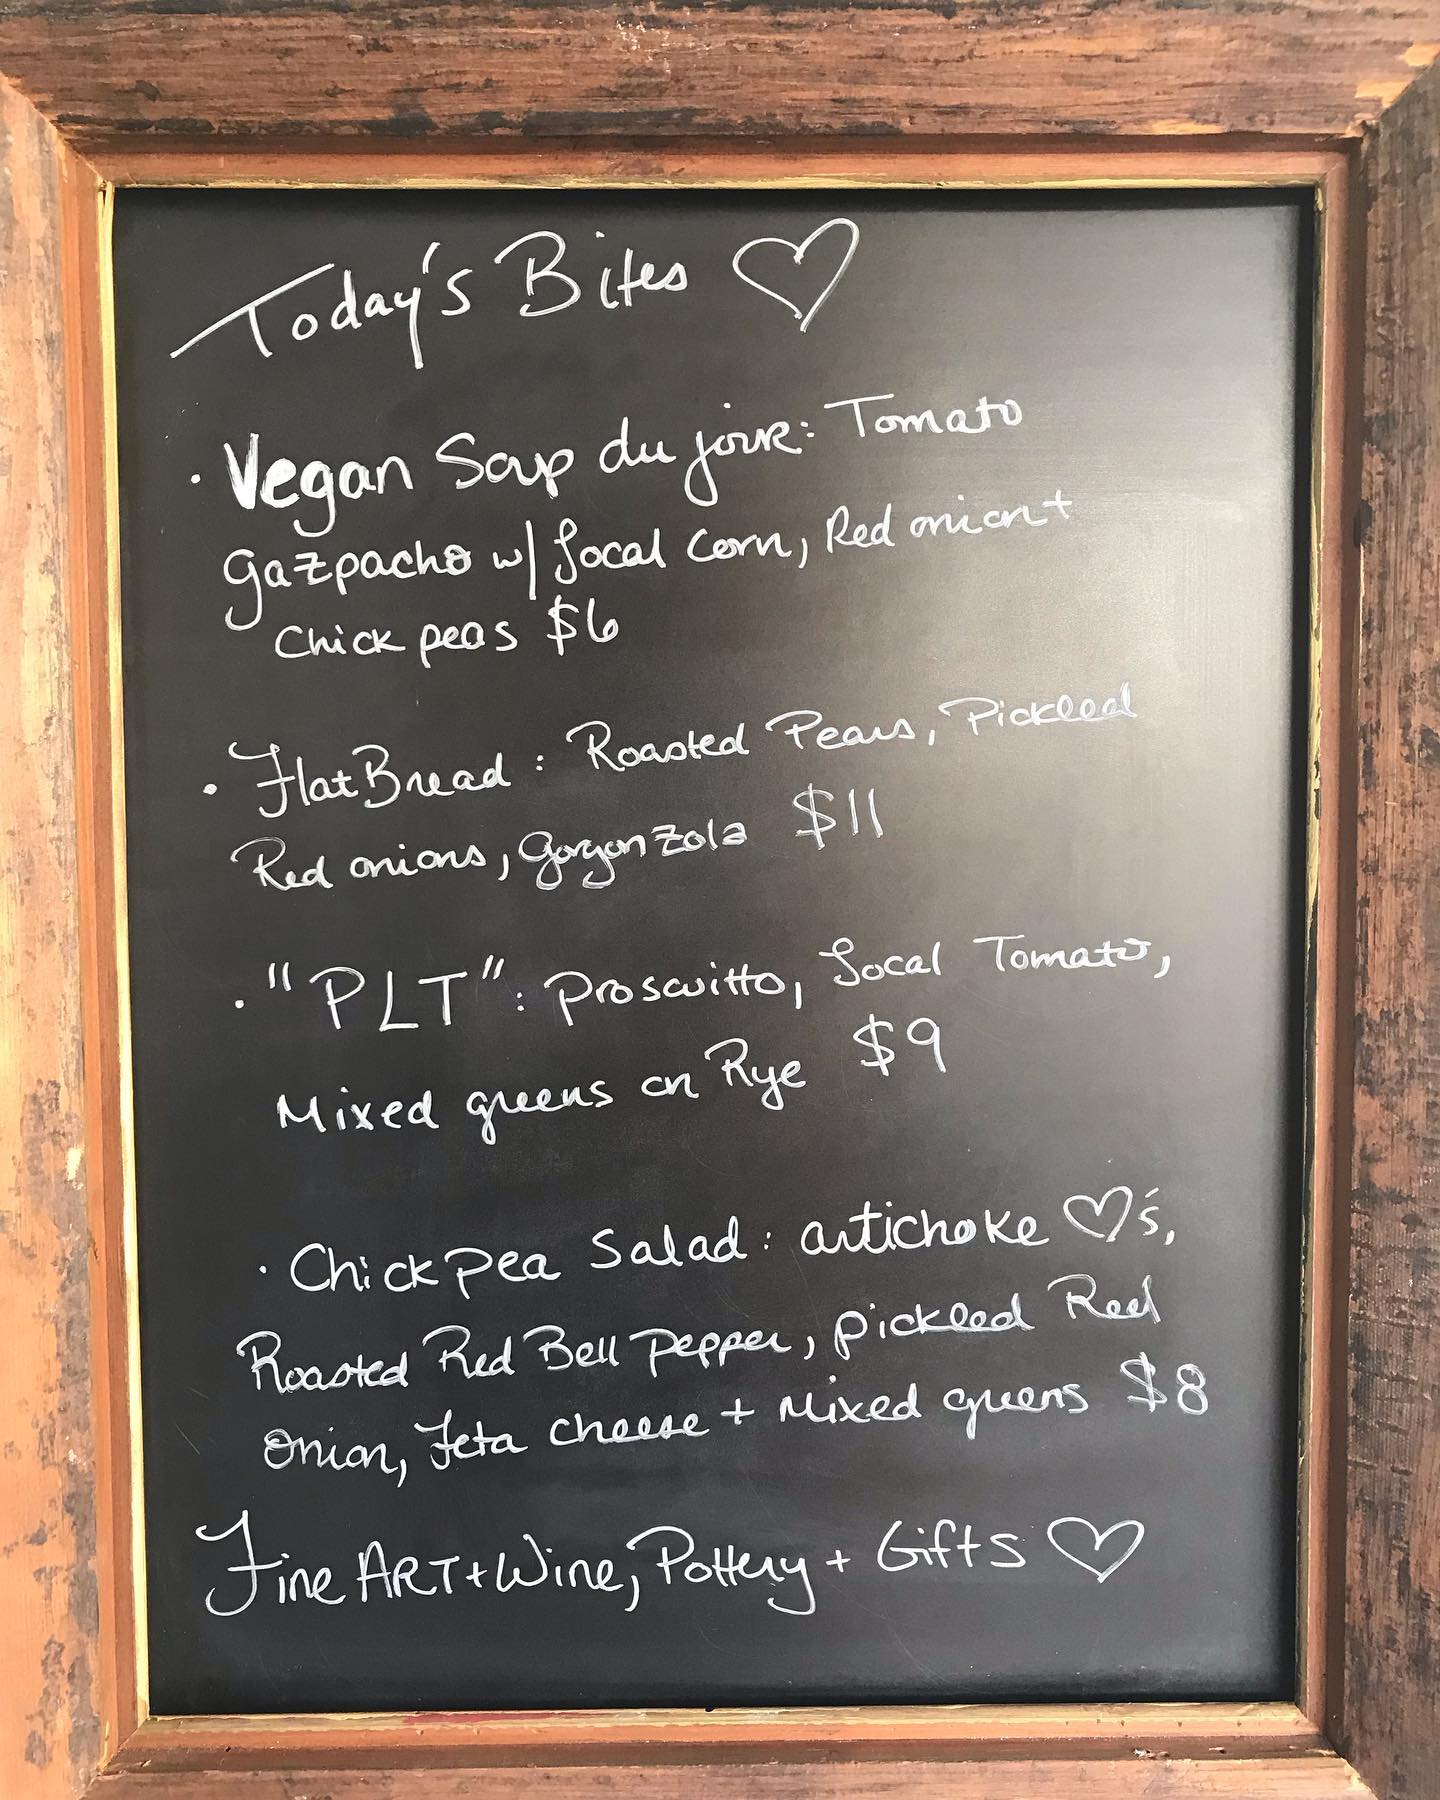 Today's Bites ♡
· Vegan Soup du jour: Tomato
gazpacho w/ local corn, Red onion +
Chick peas $6
· FlatBread: Roasted Pears, Pickled
Red onions, gorgonzola $11
· "PLT": Proscuitto, local Tomato,
Mixed greens on Rye $9
· Chick pea Salad: artichoke ♡'s,
Roasted Red Bell pepper, pickled Red
onion, feta cheese + Mixed greens $8
Fine ART + Wine, Pottery + Gifts ♡